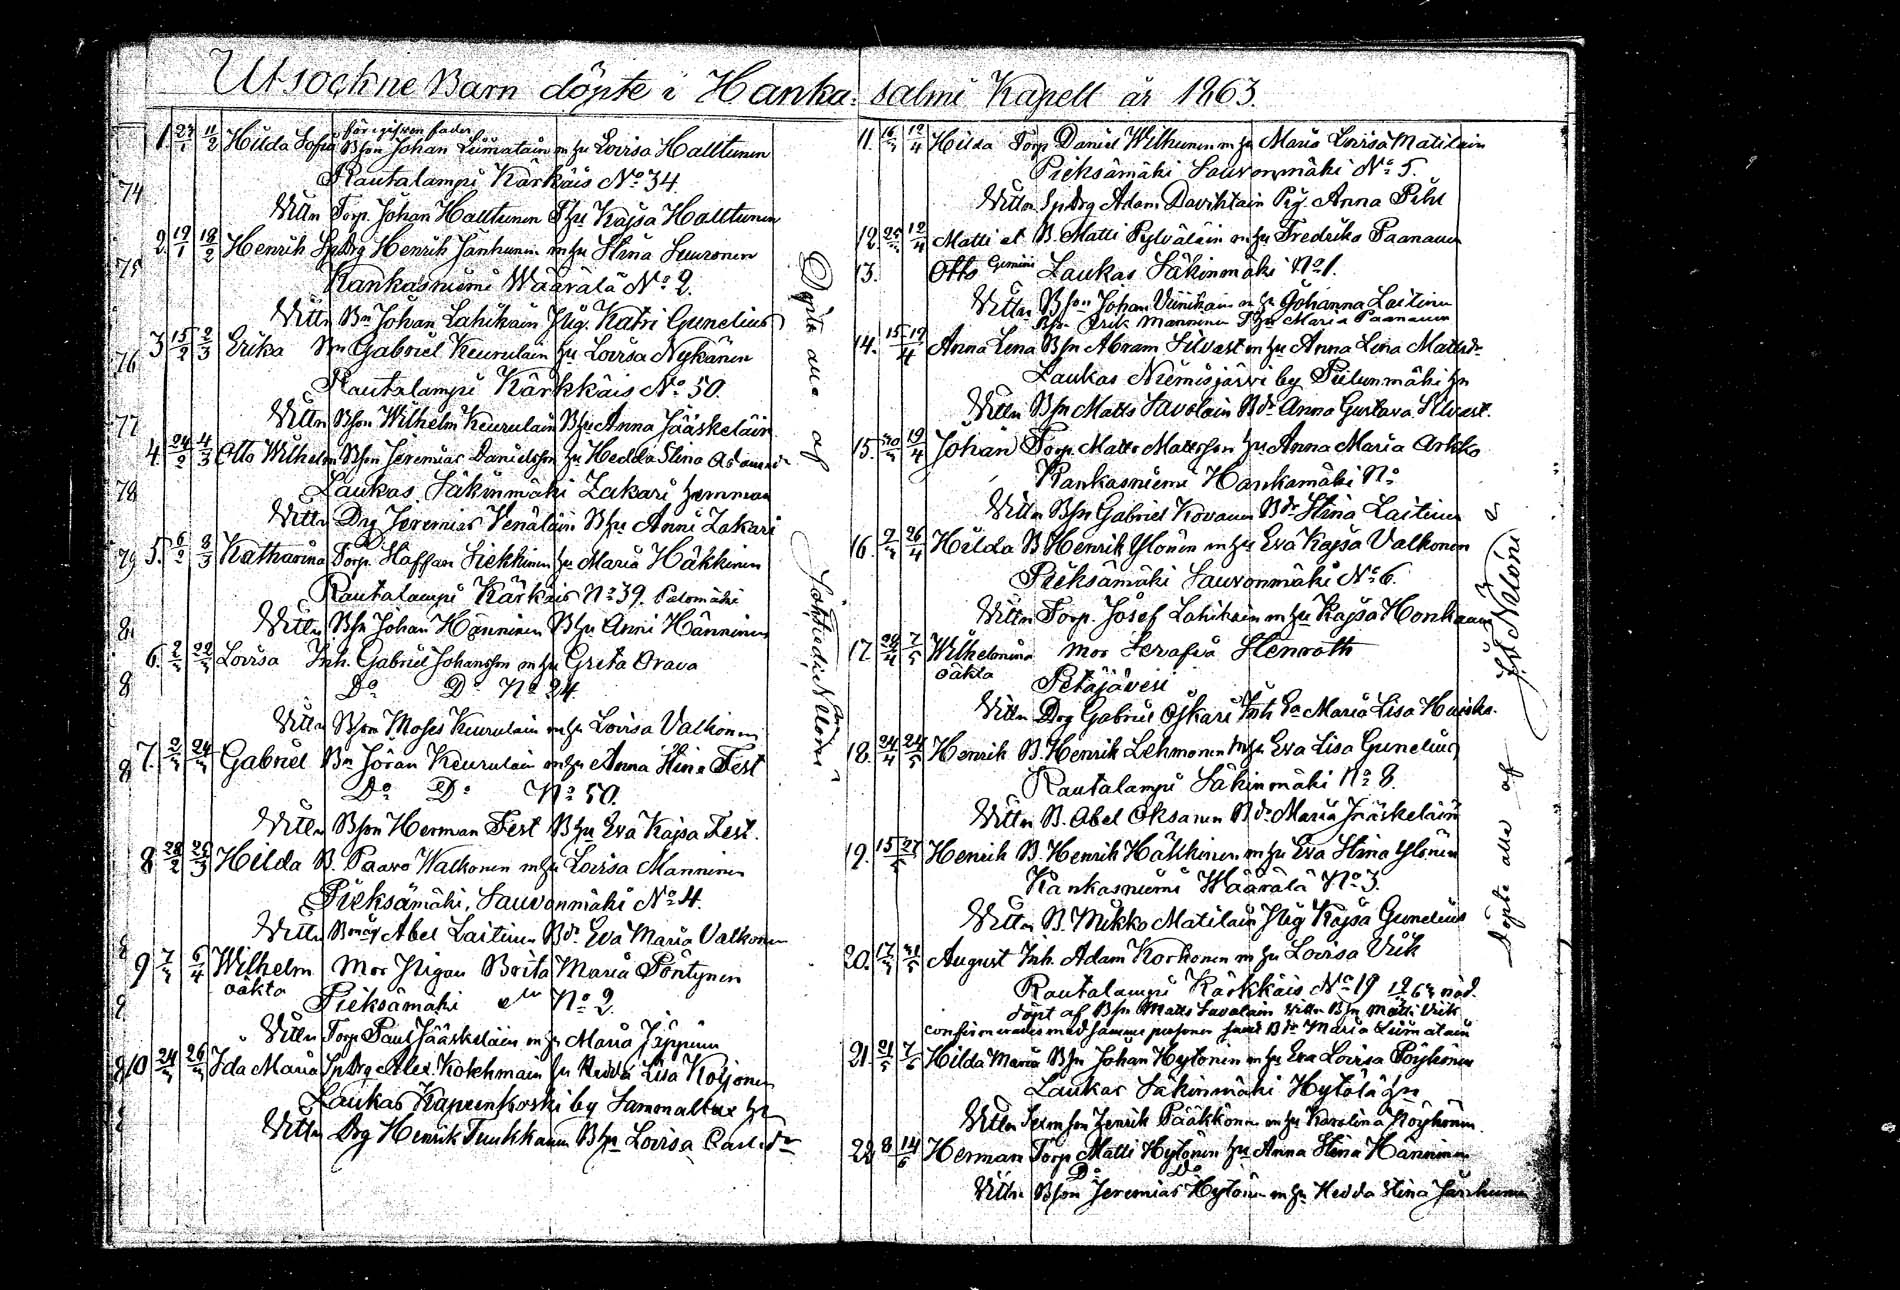 Utsockne Barn döpte i Hankasalmi Kapell år 1863.
1. 11/2 Hilda Sofia Bson Johan Lumatain m hu Lovisa Halttunen
Rautalampi Kärkäis No 34.
Vittn Torp. Johan Halttunen Thu Kajsa Halttunen
2. 19/1 18/2 Henrik SpDrg Henrik Jänhunen m hu Stina Suuronen
Kankasniemi Wäärälä No 2.
Vittn Bn Johan Lahikain Pig. Katri Gunelius
3 15/2 2/3 Erika Bn Gabriel Keurulain hu Lovisa Nykänen
Rautalampi Kärkkäis No 50.
Vittn Bson Wilhelm Keurulain Bhu Anna Jääskeläin
4. 24/2 4/3 Otto Wilhelm Bson Jeremias Danielsson hu Hedda Stina Adamsdr
Laukas Säkinmäki Zakari hemman
Vittn Drg Jeremias Venäläin Bhu Anni Zakari
5. 6/2 8/3 Katharina Torp. Staffan Siekkinen hu Maria Häkkinen
Rautalampi Kärkäis No 39. Palomäki
Vittn Bson Johan Hänninen Bhu Anni Hänninen
6. 2/3 22/3 Lovisa Inh. Gabriel Johansson m hu Greta Orava
Do Do No 24
Vittn Bson Moses Keurulain m hu Lovisa Valkonen
7. 2/3 24/3 Gabriel Bn Jöran Keurulain m hu Anna Stina Fest
Do Do No 50.
Vittn Bson Herman Fest Bhu Eva Kajsa Fest.
8 28/2 25/3 Hilda B. Paavo Walkonen m hu Lovisa Manninen
Pieksämäki, Sauvonmäki No 4.
Vittn Abel Laitinen Bdr Eva Maria Valkonen
9 7/3 6/4 Wilhelm Mor Pigan Brita Maria Pöntynen
oäkta Pieksämäki No 2.
Vittn Torp Paul Jääskeläin m hu Maria Jäppinen
10 24/3 26/3 Ida Maria SpDrg Alex Kokhmain hu Hedda Lisa Koljonen
Laukas Kapeenkoski by
Vittn Drg Henrik Tuukkanen Bhu Lovisa Carlsdr
Döpte alla af
11. 16/3 12/4 Hilda Torp Daniel Wilhunen m hu Maria Lovisa Matilain
Pieksämäki Sauvonmäki No 5.
Vittn SpDrg Adam Davihtain Pig. Anna Pihl
12. 25/3 12/4 Matti et B. Matti Pylväläin m hu Fredrika Paananen
13. Otto Gemini Laukas Säkinmäki No 1.
Vittn Bson Johan Viinikain m hu Johanna Laitinen
Bson Erik Manninen Thu Maria Paananen
14. 15/4 19/4 Anna Lena Bsn Abram Silvast m hu Anna Lena Mattsdr
Laukas Niemisjärvi by Pielunmäki hn
Vittn Bsn Matts Savolain Bdr Anna Gustava Silvast.
15. 30/3 19/4 Johan Torp. Matts Mattsson hu Anna Maria Arkko
Kankasniemi Hankamäki No
Vittn Bsn Gabriel Kovanen Bdr Stina Laitinen
16. 26/4 Hilda B. Henrik Ylönen m hu Eva Kajsa Valkonen
Pieksämäki Sauvonmäki No 6.
Vittn Torp. Josef Lahikain m hu Kajsa Honkanen
17. 29/4 7/5 Wilhelmina Mor Serafia Stenroth
oäkta Petäjävesi
Vittn Drg Gabriel Oskari Inh Maria Lisa
18. 24/4 24/5 Henrik B. Henrik Lehmonen m hu Eva Lisa Gunelius
Rautalampi Säkinmäki No 8.
Vittn B. Abel Oksanen Bdr Maria Jääskeläin
19. 15/5 27/5 Henrik B. Henrik Häkkinen m hu Eva Stina Ylönen
Kankasniemi Wäärälä No 3.
Vittn B. Mikko Matilain Pig Kajsa Gunelius
20. 17/5 31/5 August Inh. Adam Korhonen m hu Lovisa Vik
Rautalampi Kärkkäis No 19 nöd.
döpt af Bsn Matts Savolain Vittn Bsn Matti Vik
confirmerades med samma personer samt Bdr Maria Lumatain
21. 21/5 7/6 Hilda Maria Bsn Johan Hytönen m hu Eva Lovisa Pöyhönen
Laukas Säkinmäki Hytölä hn
Vittn Henrik Pääkkönen m hu Karolina Pöyhönen.
22. 8/6 14/6 Herman Torp Matti Hytönen hu Anna Stina Hänninen
Do Do
Vittn Bson Jeremias Hytönen m hu Hedda Stina Jänhunen
Döpte alla af